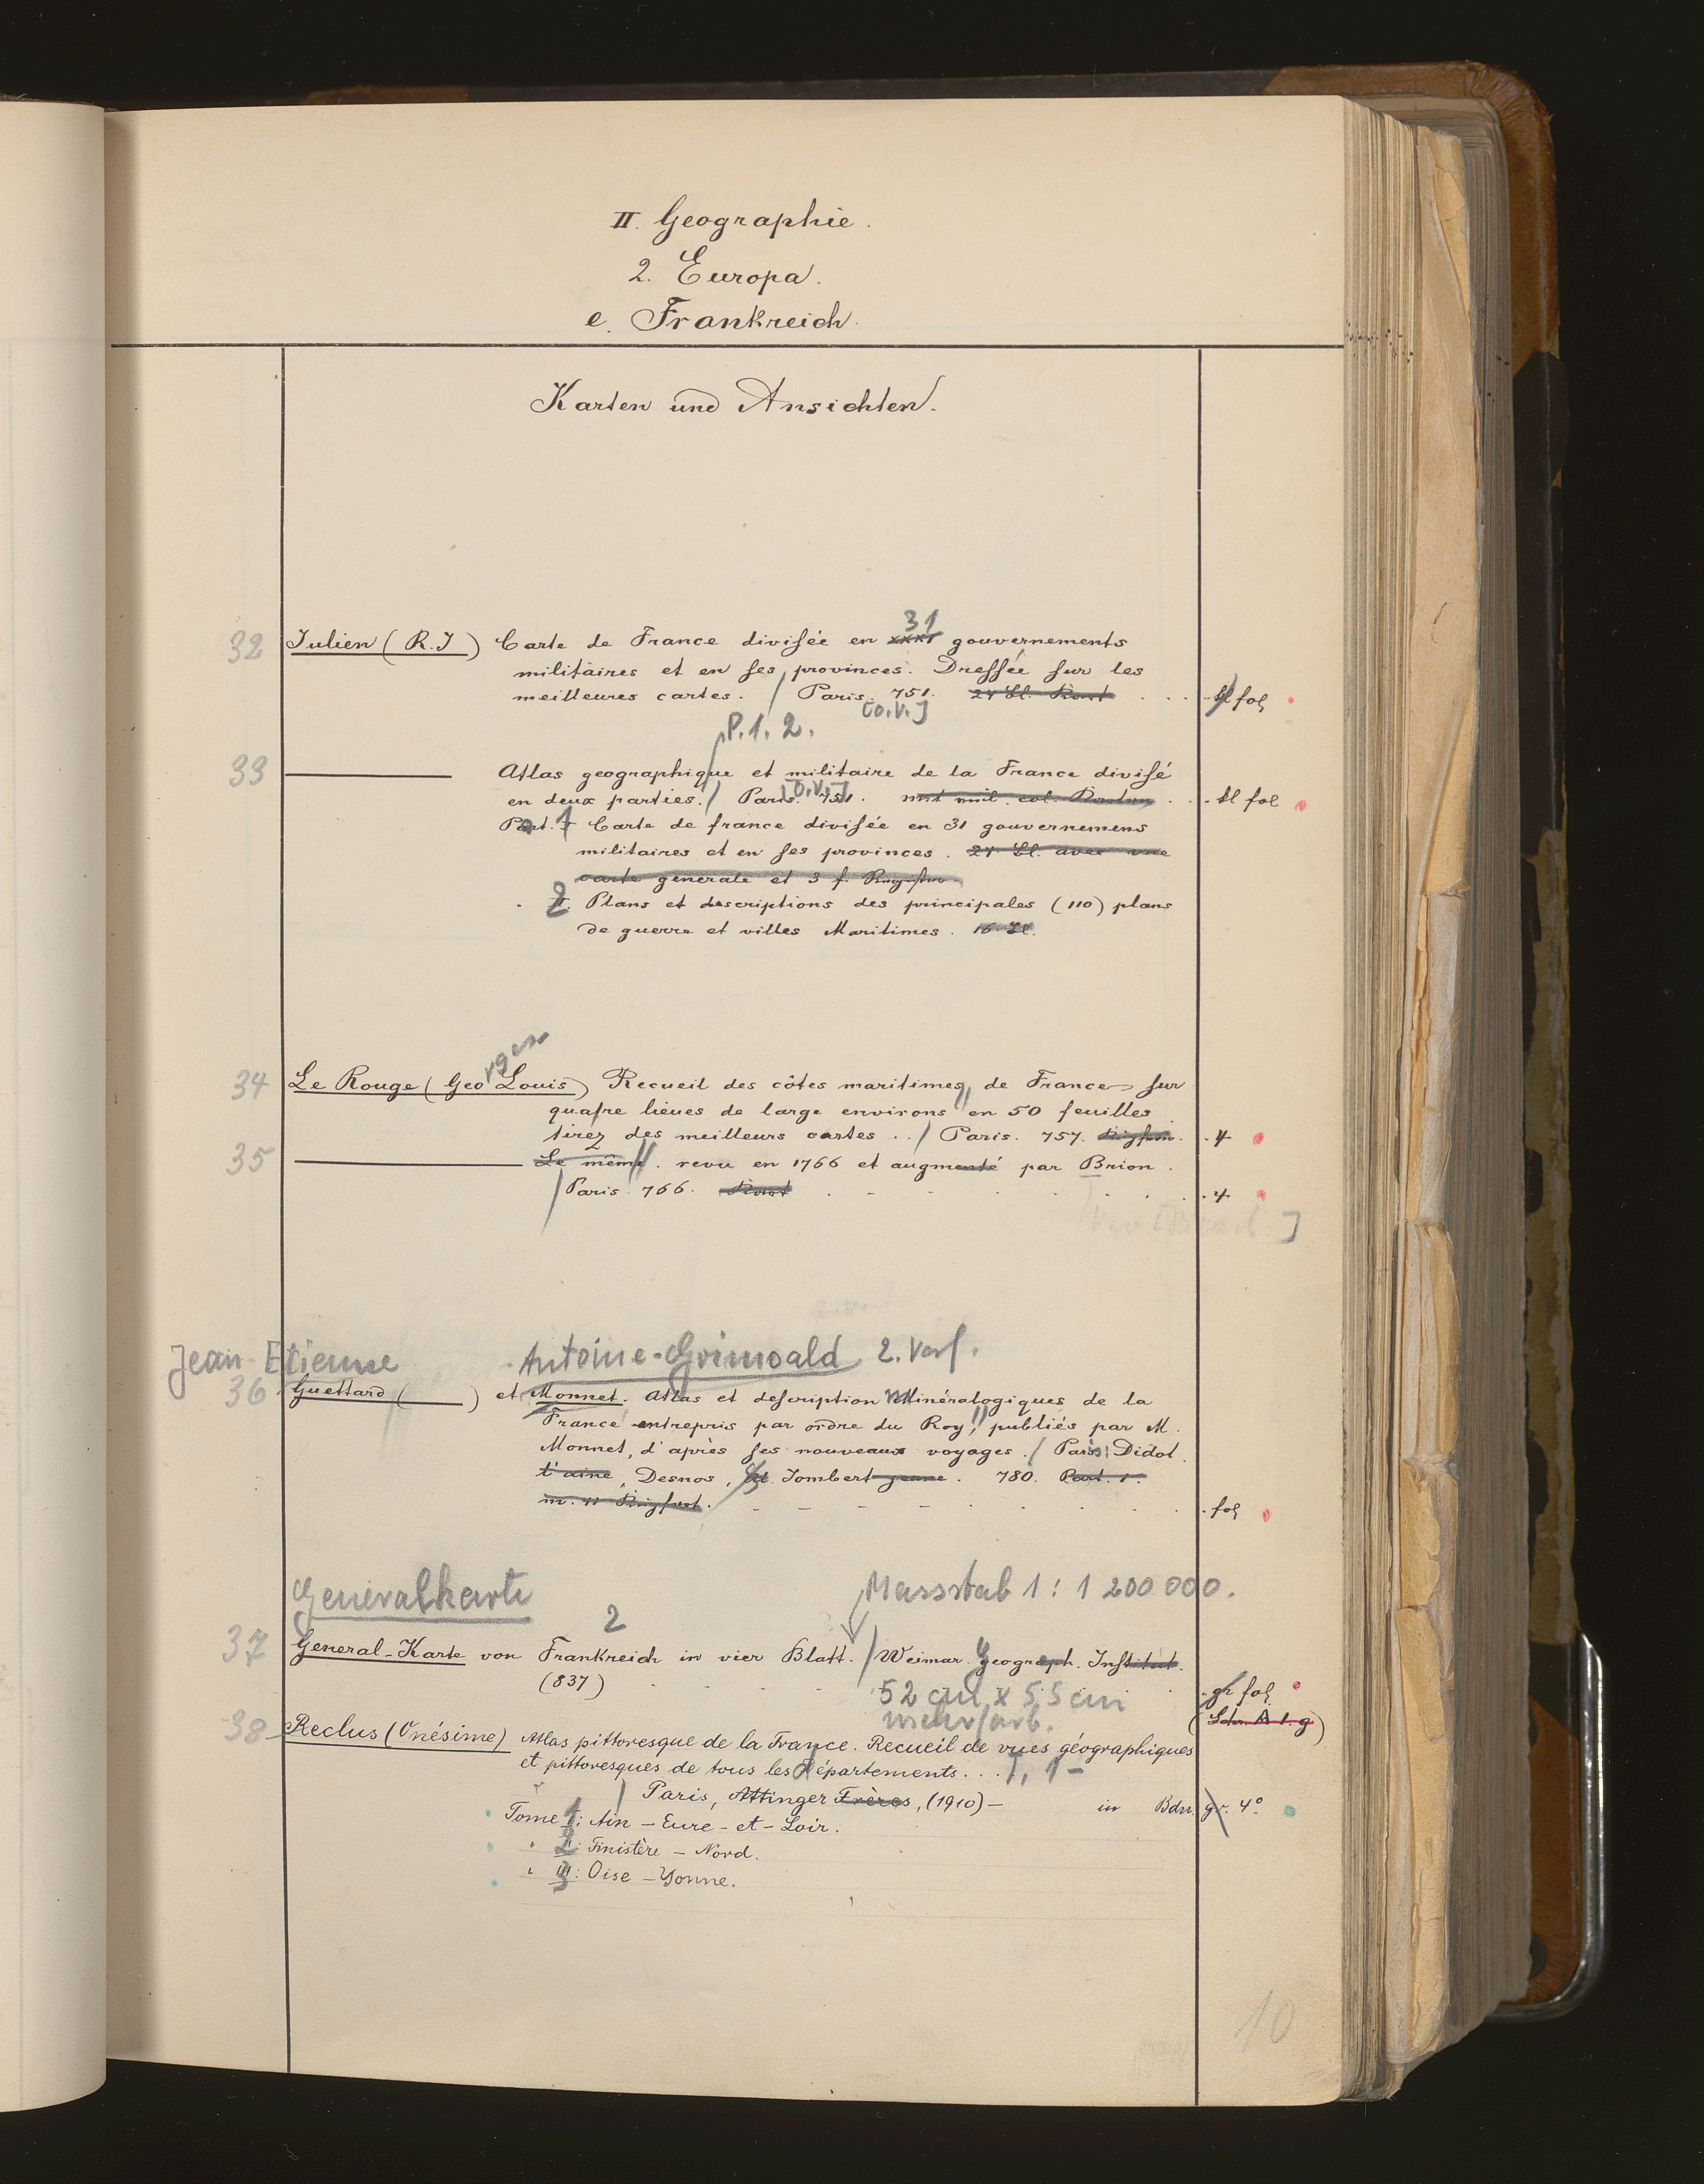 II. Geographie.
2. Europa.
e. Frankreich.
Karten und Ansichten.
31
32 Julien (R.J) Carte de France divisée en XXXI gouvernements
militaires et en ses provinces. Dressée sur les
meilleures cartes. / Paris. 751. fol
[o.V.]
P. 1. 2.
33 Atlas geographique et militaire de la France divisé
en deux parties. / Paris. [O.V.] 751. fol
Part. 1 Carte de france divisée en 31 gouvernemens
militaires et en ses provinces. 21. Bl. avec une
carte generale et 3 f.
2 Plans et descriptions des principales (110) plans
de guerre et villes Maritimes.
34 Le Rouge (Georges Louis) Recueil des côtes maritimes de France sur
quatre lieues de large environs en 50 feuilles
tirez des meilleurs cartes .. / Paris. 757. 4
35 Le même. revu en 1766 et augmenté par Brion.
/ Paris. 766. 4
Jean-Etienne Antoine-Grimoald 2. Verf.
36 Guettard ( ) et Monnet. Atlas et description Minéralogiques de la
France entrepris par ordre du Roy, publiés par M.
Monnet, d'après ses nouveaux voyages. / Paris: Didot
l'ainé, Desnos, Jombert jeune. 780. Part. 1.
fol
Generalkarte Massstab 1 : 1 200 000.
2
37 General-Karte von Frankreich in vier Blatt. / Weimar. geograph. Institut.
(837) 52 cm x 55 cm gr fol
mehrfarb. (Schr. A 1. g)
38 Reclus (Onésime) Atlas pittoresque de la France. Recueil de vues géographiques
et pittoresques de tous les départements... 1 -
/ Paris, Attinger Frères, (1910) - in Bdn. gr. 4°
Tome 1: Ain - Eure-et-Loir.
" 2: Finistère - Nord.
" 3: Oise - Yonne.
10